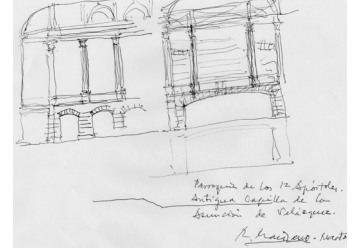 Parroquia de los 12 Apóstoles.
Antigua Capilla de la
Asunción de Velázquez.